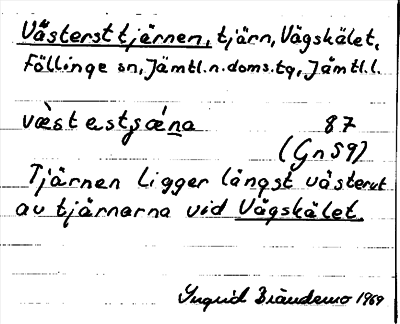 Västersttjärnen, tjärn, Vägskälet,
Föllinge sn, Jämtl.n.doms.tg, Jämtl.l.
væ̀stəstʂǽna 87
(Gn 59)
Tjärnen ligger längst västerut
av tjärnarna vid Vägskälet.
Ingrid Brändemo 1969